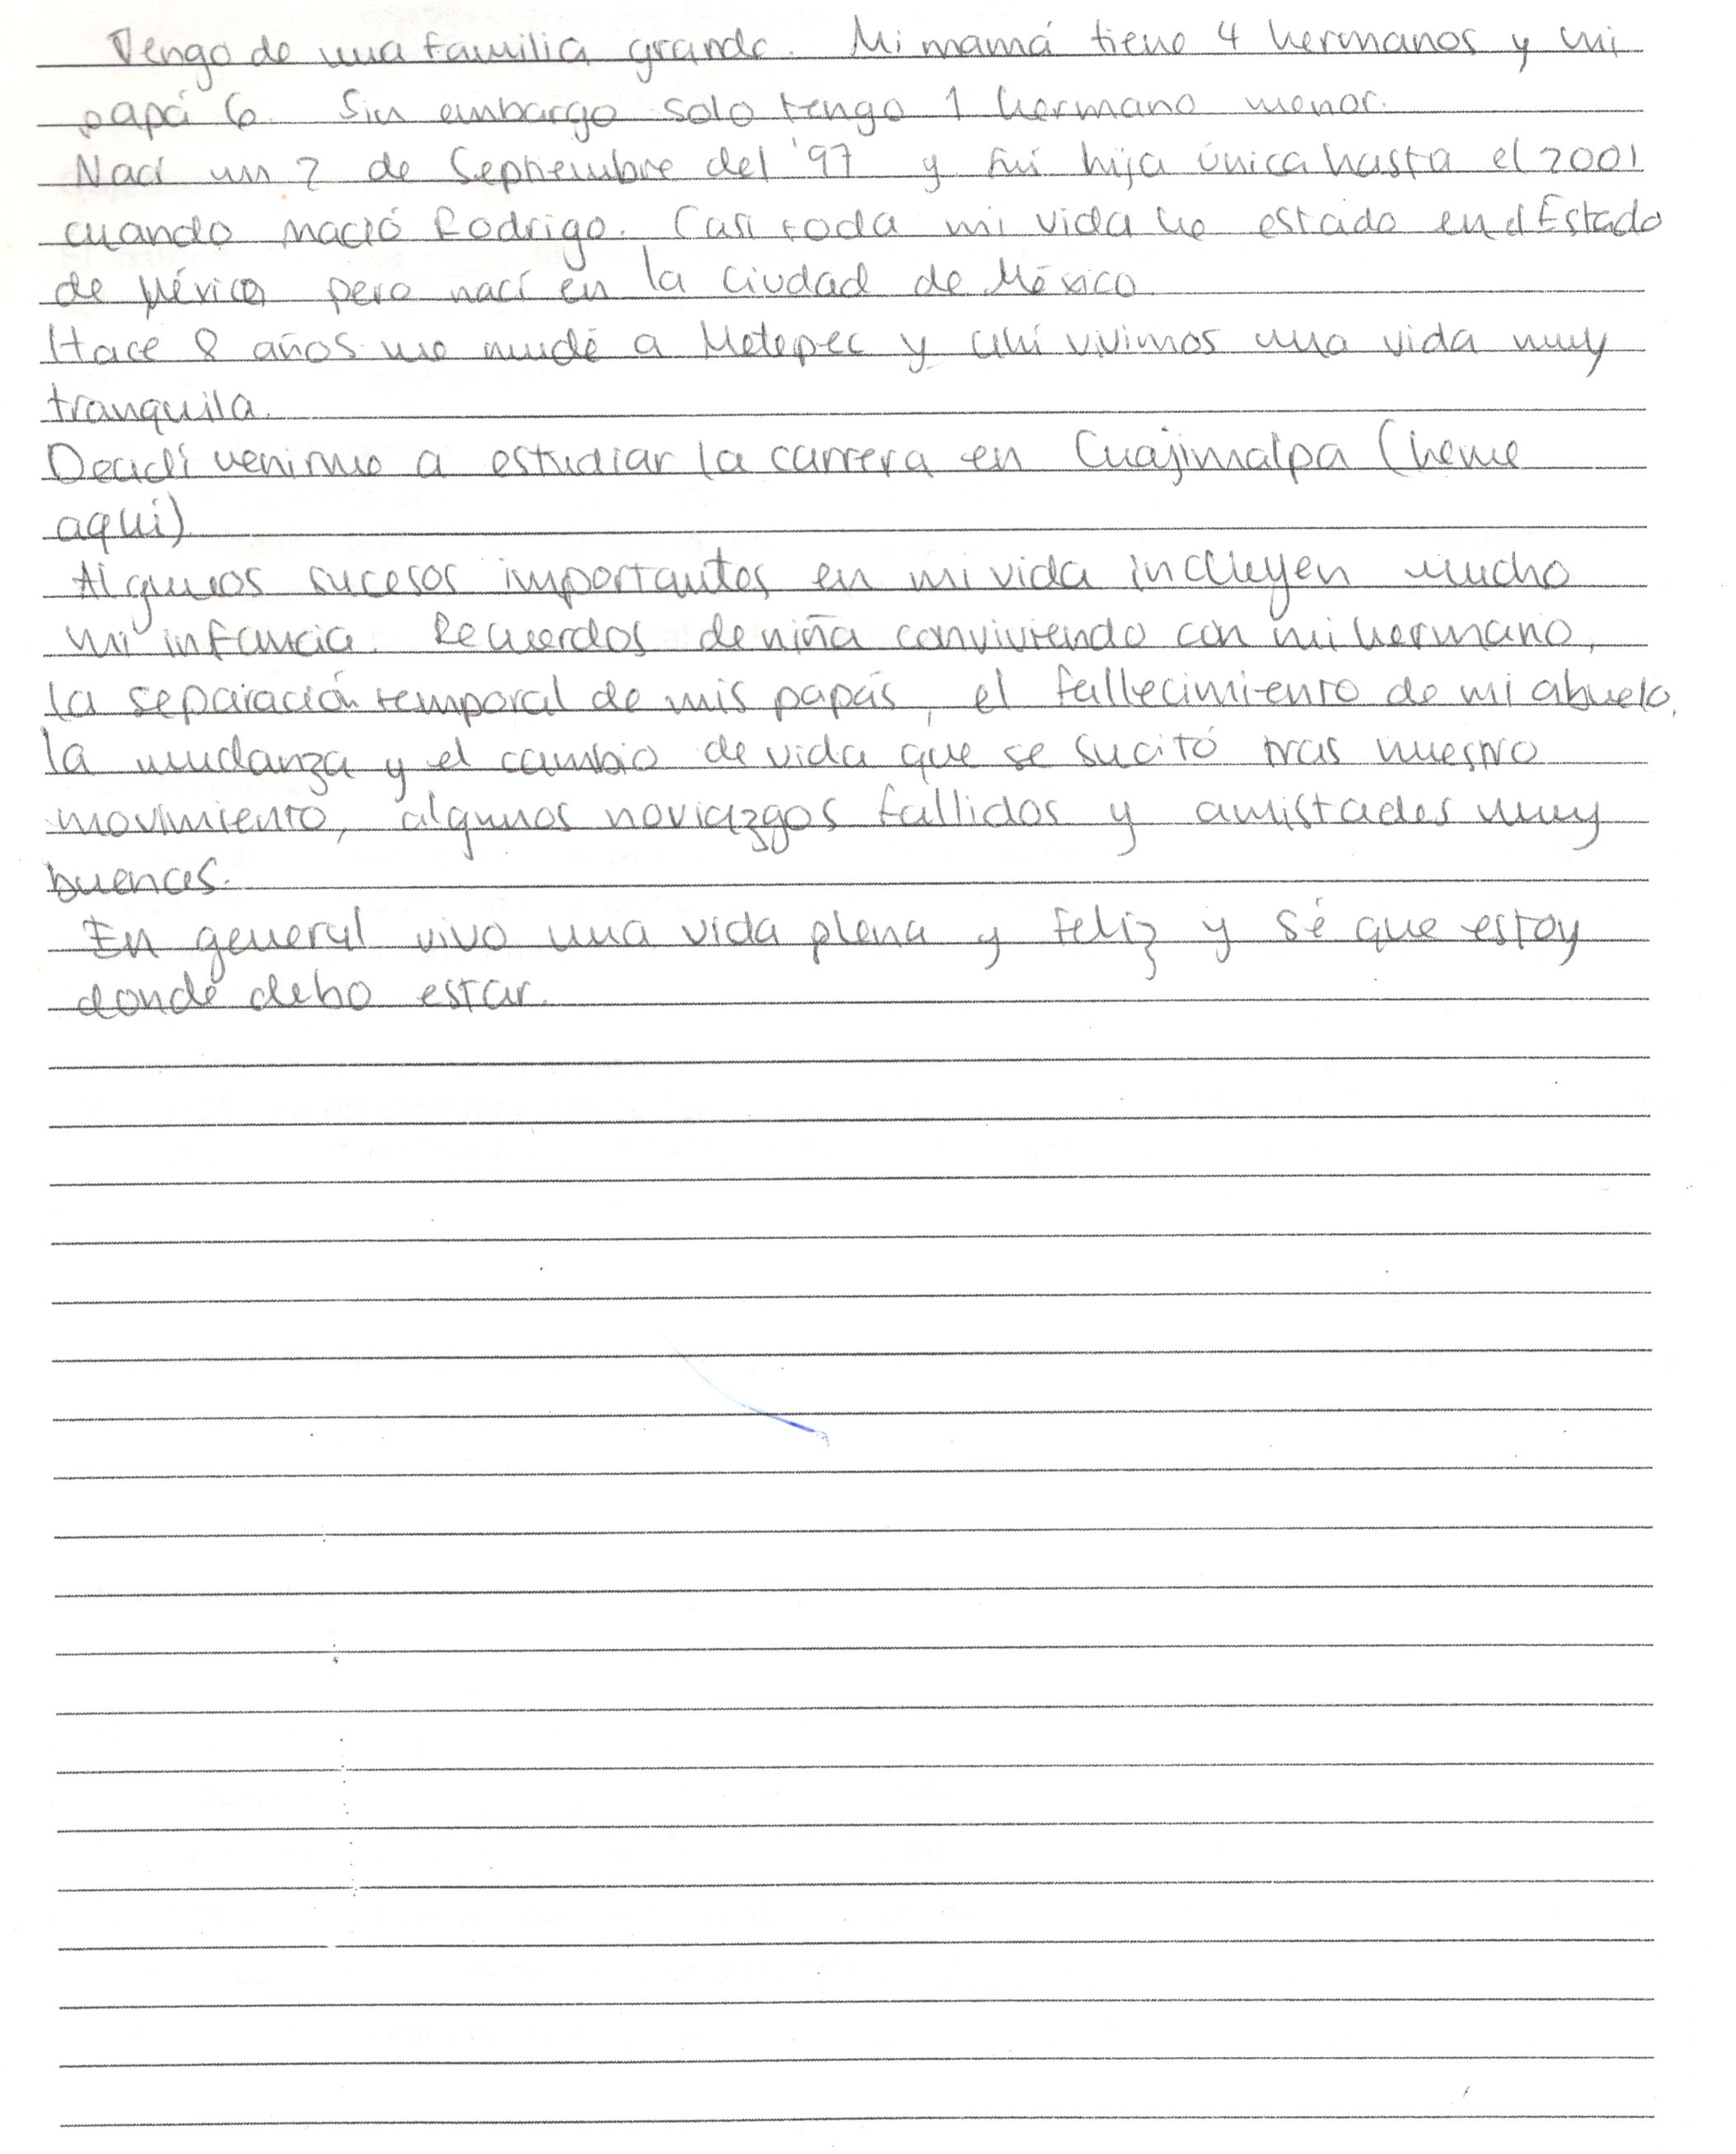 Vengo de una familia grande. Mi mamá tiene 4 hermanos y mi
papá 6. Sin embargo solo tengo 1 hermano menor.
Nací un 2 de Septiembre del '97 y fui hija única hasta el 2001
cuando nació Rodrigo. Casi toda mi vida he estado en el Estado
de México pero nací en la Ciudad de México.
Hace 8 años me mudé a Metepec y ahí vivimos una vida muy
tranquila.
Decidí venirme a estudiar la carrera en Cuajimalpa (heme
aquí)
Algunos sucesos importantes en mi vida incluyen mucho
mi infancia. Recuerdos de niña conviviendo con mi hermano,
la separación temporal de mis papás, el fallecimiento de mi abuelo,
la mudanza y el cambio de vida que se sucitó tras nuestro
movimiento, algunos noviazgos fallidos y amistades muy
buenas.
En general vivo una vida plena y feliz y sé que estoy
donde debo estar.